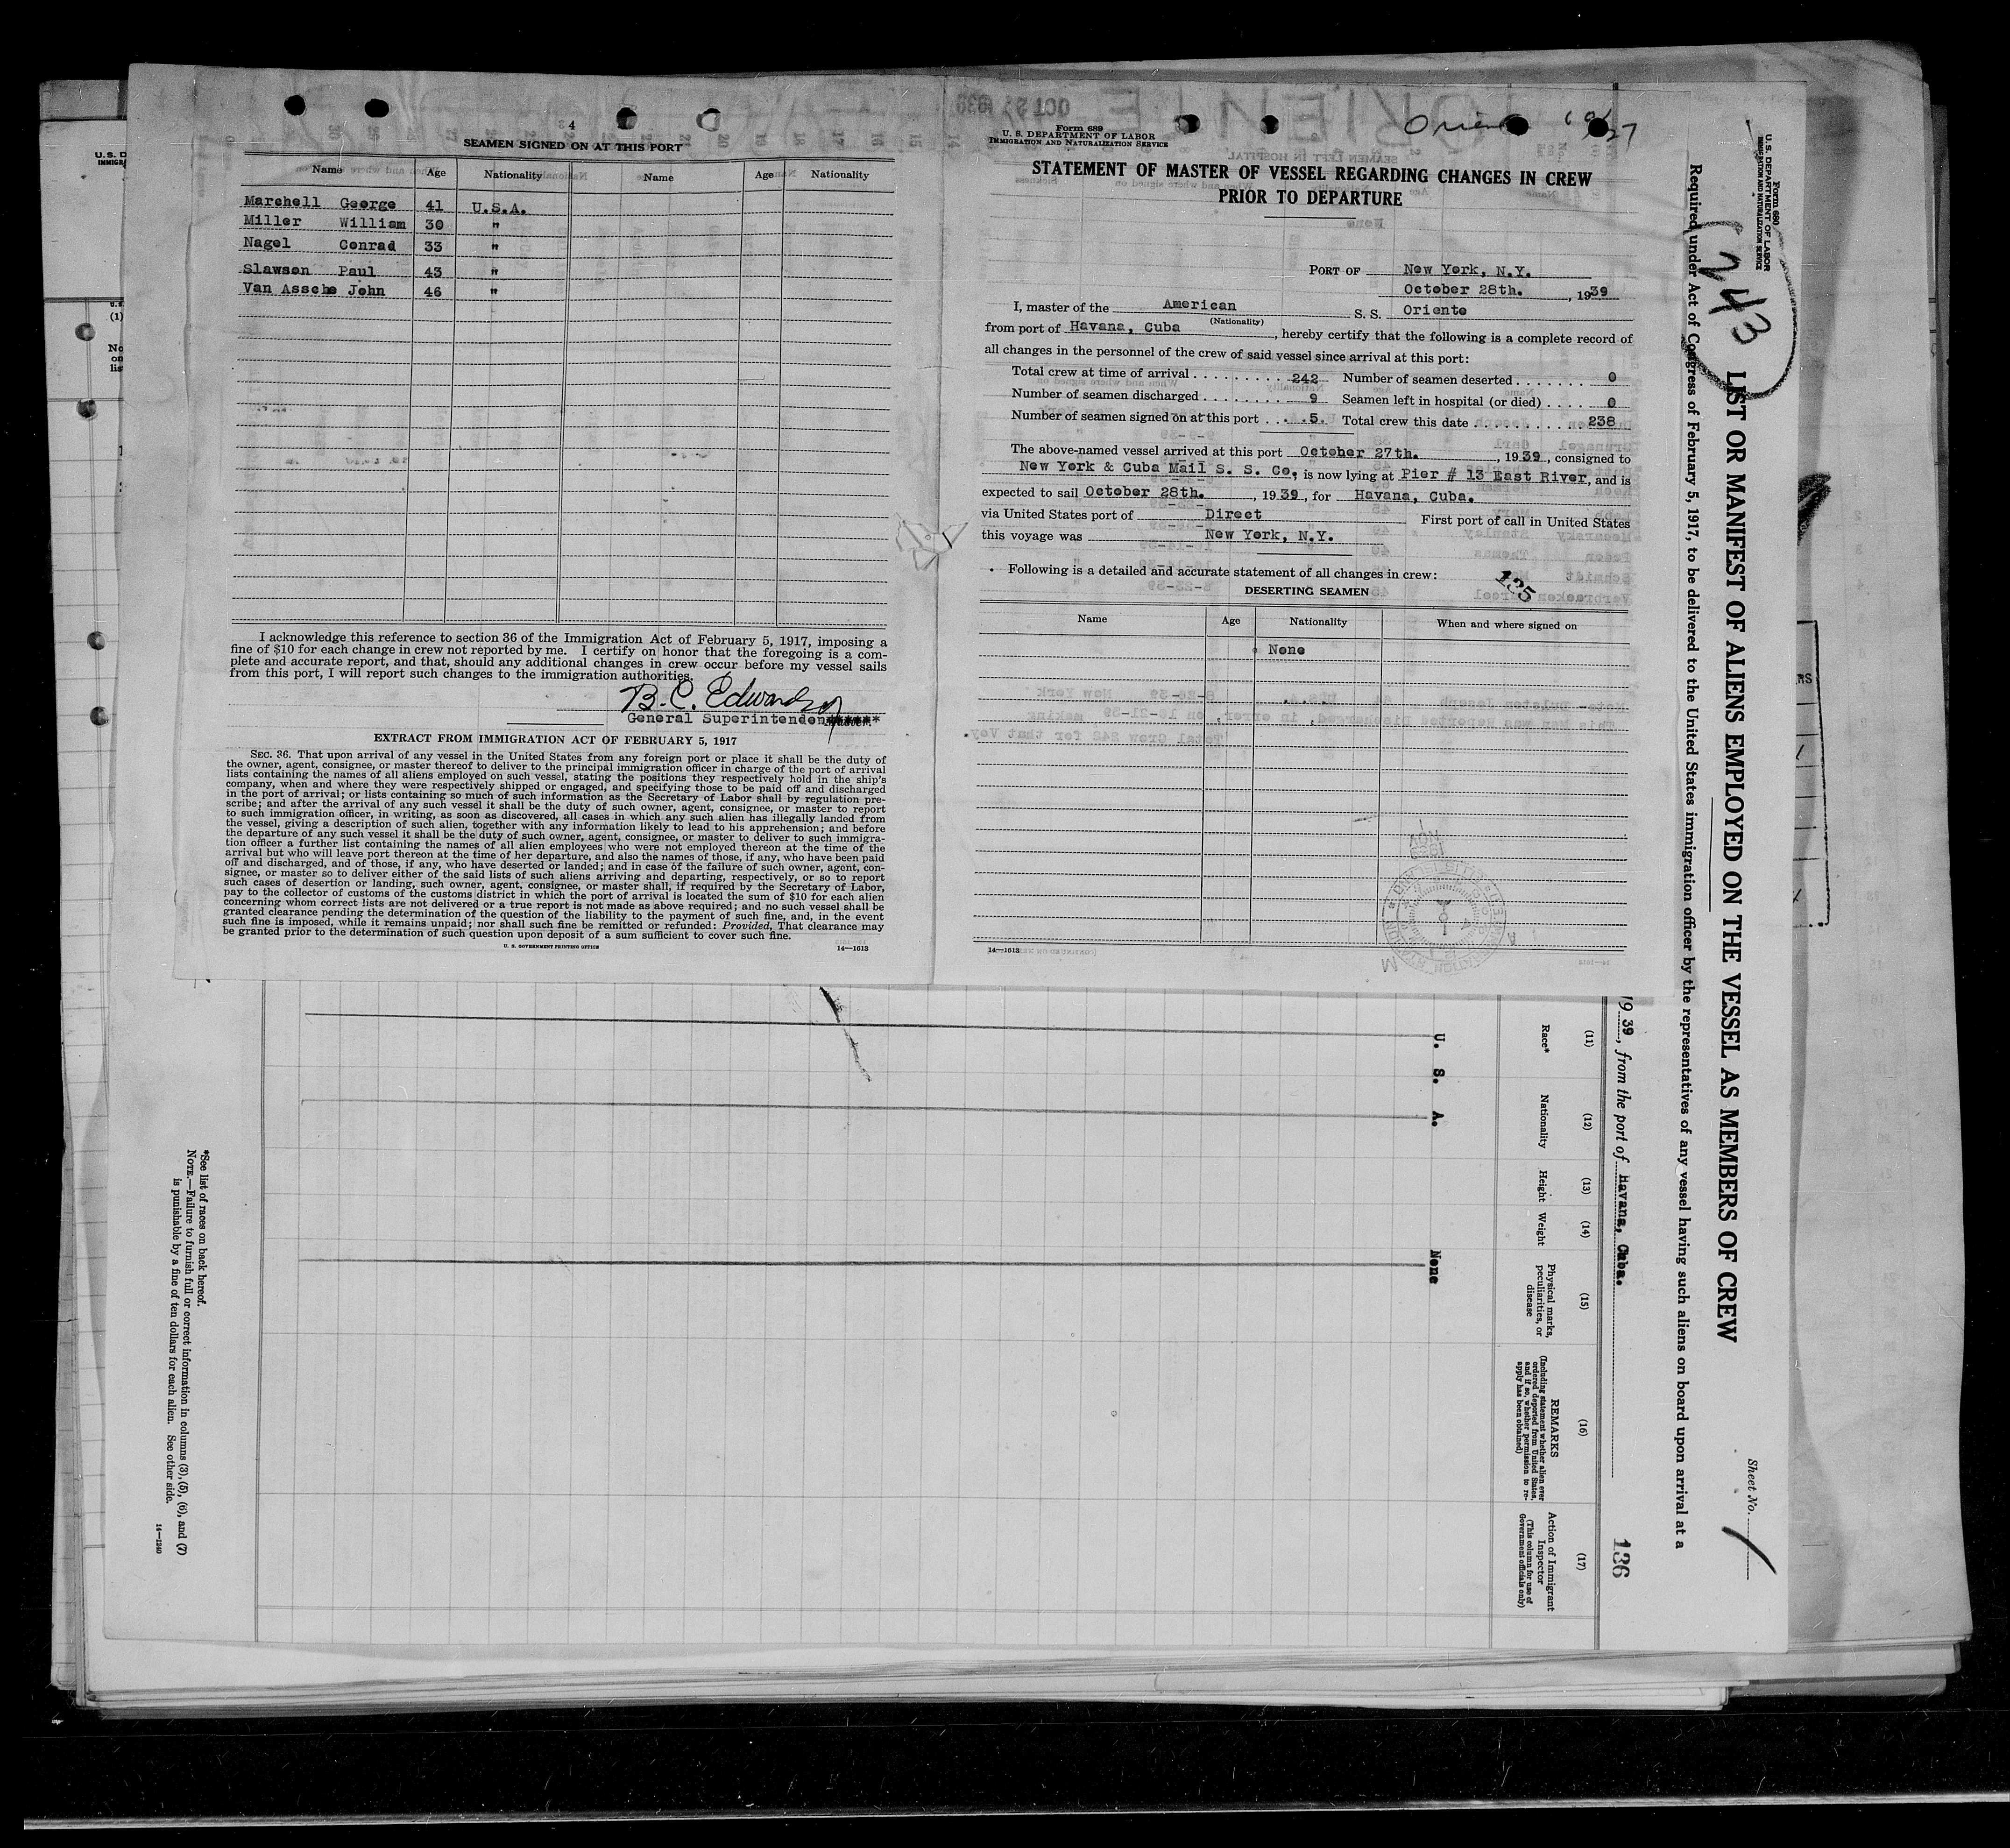 4
SEAMEN SIGNED ON AT THIS PORT
Name Age Nationality Name Age Nationality
Marshell George 41 U.S.A.
Miller William 30 "
Nagel Conrad 33 "
Slawson Paul 43 "
Van Assche John 46 "
I acknowledge this reference to section 36 of the Immigration Act of February 5, 1917, imposing a
fine of $10 for each change in crew not reported by me. I certify on honor that the foregoing is a com-
plete and accurate report, and that, should any additional changes in crew occur before my vessel sails
from this port, I will report such changes to the immigration authorities.
B. C. Edwards
General Superintendent
EXTRACT FROM IMMIGRATION ACT OF FEBRUARY 5, 1917
SEC. 36. That upon arrival of any vessel in the United States from any foreign port or place it shall be the duty of
the owner, agent, consignee, or master thereof to deliver to the principal immigration officer in charge of the port of arrival
lists containing the names of all aliens employed on such vessel, stating the positions they respectively hold in the ship's
company, when and where they were respectively shipped or engaged, and specifying those to be paid off and discharged
in the port of arrival; or lists containing so much of such information as the Secretary of Labor shall by regulation pre-
scribe; and after the arrival of any such vessel it shall be the duty of such owner, agent, consignee, or master to report
to such immigration officer, in writing, as soon as discovered, all cases in which any such alien has illegally landed from
the vessel, giving a description of such alien, together with any information likely to lead to his apprehension; and before
the departure of any such vessel it shall be the duty of such owner, agent, consignee, or master to deliver to such immigra-
tion officer a further list containing the names of all alien employees who were not employed thereon at the time of the
arrival but who will leave port thereon at the time of her departure, and also the names of those, if any, who have been paid
off and discharged, and of those, if any, who have deserted or landed; and in case of the failure of such owner, agent, con-
signee, or master so to deliver either of the said lists of such aliens arriving and departing, respectively, or so to report
such cases of desertion or landing, such owner, agent, consignee, or master shall, if required by the Secretary of Labor,
pay to the collector of customs of the customs district in which the port of arrival is located the sum of $10 for each alien
concerning whom correct lists are not delivered or a true report is not made as above required; and no such vessel shall be
granted clearance pending the determination of the question of the liability to the payment of such fine, and, in the event
such fine is imposed, while it remains unpaid; nor shall such fine be remitted or refunded: Provided, That clearance may
be granted prior to the determination of such question upon deposit of a sum sufficient to cover such fine.
U. S. GOVERNMENT PRINTING OFFICE 14—1613
Form 689
U. S. DEPARTMENT OF LABOR
IMMIGRATION AND NATURALIZATION SERVICE
STATEMENT OF MASTER OF VESSEL REGARDING CHANGES IN CREW
PRIOR TO DEPARTURE
PORT OF New York, N.Y.
October 28th. , 1939
I, master of the American S. S. Oriente
(Nationality)
from port of Havana, Cuba , hereby certify that the following is a complete record of
all changes in the personnel of the crew of said vessel since arrival at this port:
Total crew at time of arrival 242 Number of seamen deserted 0
Number of seamen discharged 9 Seamen left in hospital (or died) 0
Number of seamen signed on at this port 5. Total crew this date 238
The above-named vessel arrived at this port October 27th. , 1939, consigned to
New York & Cuba Mail S. S. Co, is now lying at Pier # 13 East River, and is
expected to sail October 28th. , 1939, for Havana, Cuba.
via United States port of Direct First port of call in United States
this voyage was New York, N.Y.
Following is a detailed and accurate statement of all changes in crew:
135
DESERTING SEAMEN
Name Age Nationality When and where signed on
None
14—1613
Form 680
U. S. DEPARTMENT OF LABOR
IMMIGRATION AND NATURALIZATION SERVICE
243
Sheet No.
LIST OR MANIFEST OF ALIENS EMPLOYED ON THE VESSEL AS MEMBERS OF CREW
Required under Act of Congress of February 5, 1917, to be delivered to the United States immigration officer by the representatives of any vessel having such aliens on board upon arrival at a
1939, from the port of Havana, Cuba.
136
(11) (12) (13) (14) (15) (16) (17)
Race* Nationality Height Weight
Physical marks, peculiarities, or disease
REMARKS
(Including statement whether alien ever ordered deported from United States, and if so, whether permission to re-apply has been obtained)
Action of Immigrant Inspector
(This column for use of Government officials only)
U. S. A. None
*See list of races on back hereof.
NOTE.—Failure to furnish full or correct information in columns (3), (5), (6), and (7)
is punishable by a fine of ten dollars for each alien. See other side.
14—1240